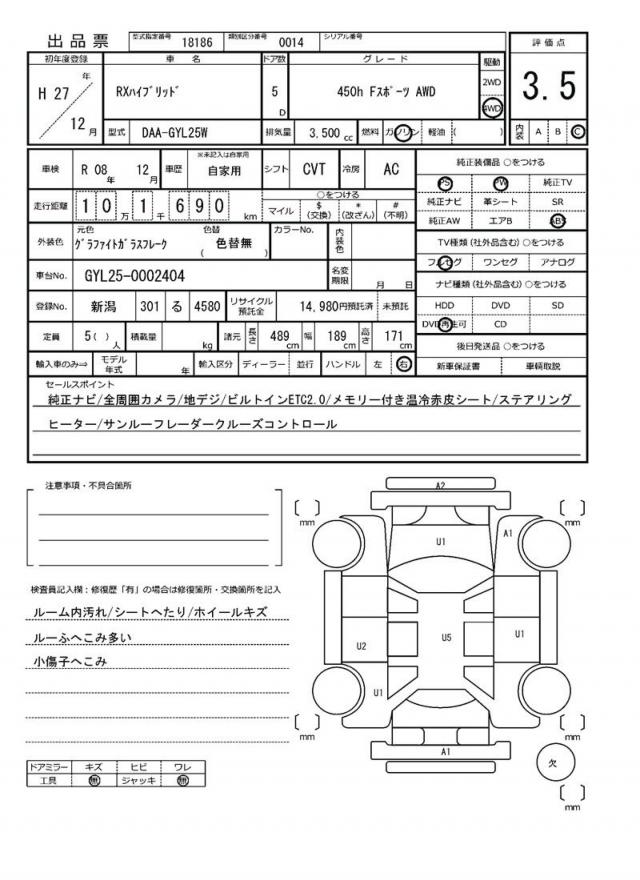 出品票 型式指定番号 18186 類別区分番号 0014 シリアル番号
評価点
3.5
内装 A B C
初年度登録 車名 ドア数 グレード 駆動
H 27 年 12 月 RXハイブリッド 5 D 450h Fスポーツ AWD 2WD 4WD
型式 DAA-GYL25W 排気量 3,500 cc 燃料 ガソリン 軽油 ( )
車検 R 08 年 12 月 車歴 ※未記入は自家用 自家用 シフト CVT 冷房 AC
走行距離 1 0 万 1 千 6 9 0 km ○をつける
マイル $ (交換) * (改ざん) # (不明)
外装色 元色 グラファイトガラスフレーク 色替 ( 色替無 ) カラーNo. 内装色
車台No. GYL25-0002404 名変期限 月 日
登録No. 新潟 301 る 4580 リサイクル預託金 14,980円預託済 未預託
定員 5( ) 人 積載量 kg 諸元 長さ 489 cm 幅 189 cm 高さ 171 cm
輸入車のみ⇒ モデル年式 年 輸入区分 ディーラー 並行 ハンドル 左 右
純正装備品 ○をつける
PS PW 純正TV
純正ナビ 革シート SR
純正AW エアB ABS
TV種類(社外品含む) ○をつける
フルセグ ワンセグ アナログ
ナビ種類(社外品含む) ○をつける
HDD DVD SD
DVD再生可 CD
後日発送品 ○をつける
新車保証書 車輌取説
セールスポイント
純正ナビ/全周囲カメラ/地デジ/ビルトインETC2.0/メモリー付き温冷赤皮シート/ステアリング
ヒーター/サンルーフレーダークルーズコントロール
注意事項・不具合箇所
検査員記入欄:修復歴「有」の場合は修復箇所・交換箇所を記入
ルーム内汚れ/シートへたり/ホイールキズ
ルーふへこみ多い
小傷子へこみ
ドアミラー キズ ヒビ ワレ
工具 無 ジャッキ 無
A2
[ ] mm
[ ] mm
A1
U1
U2
U5
U1
U1
[ ] mm
[ ] mm
A1
欠
[ ] mm